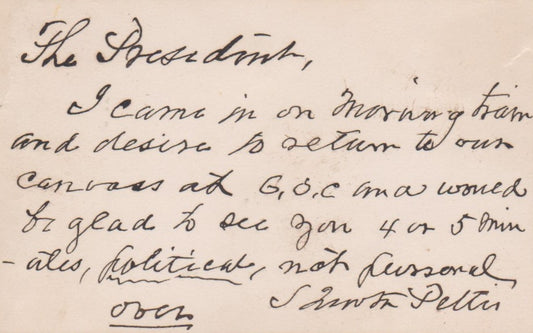 The President,
I came in on Morning train
and desire to return to our
canvass at G.S.C and would
be glad to see you 4 or 5 min
-utes, political, not personal
over S Newton Pettis